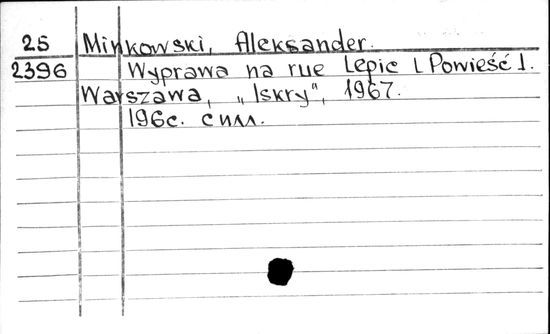 25 Minkowski, Aleksander.
2396 Wyprawa na rue Lepic [Powieść].
Warszawa, „Iskry", 1967.
196c. с илл.